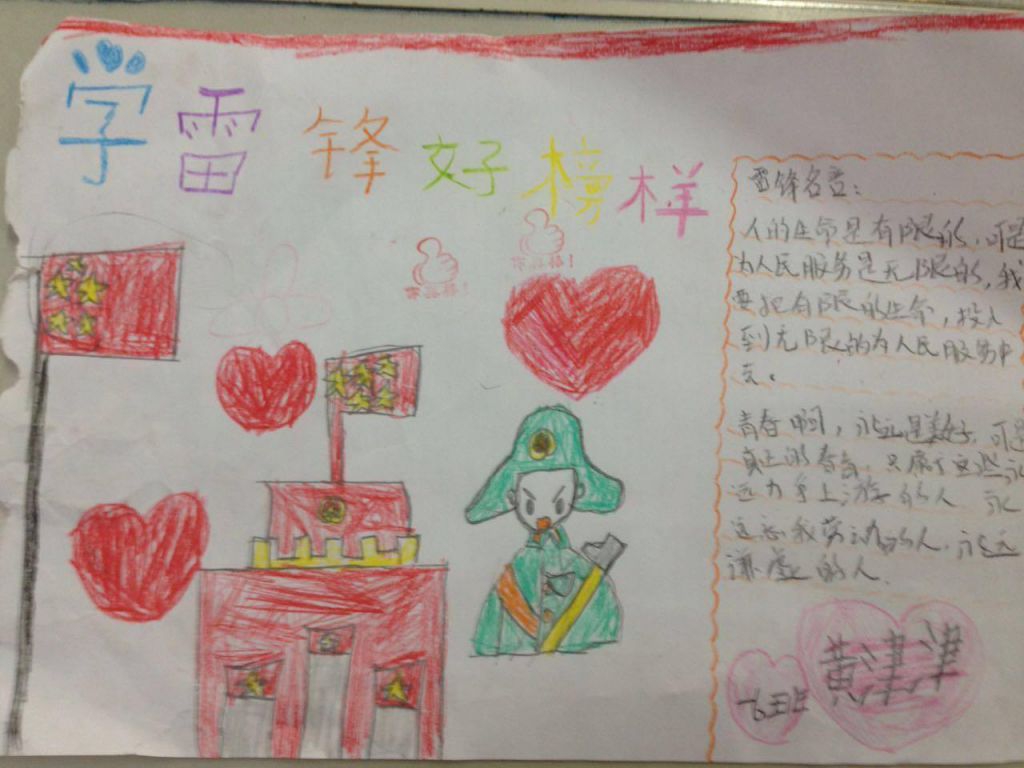 学雷锋好榜样
你真棒!
你真棒!
雷锋名言：
人的生命是有限的，可是
为人民服务是无限的，我
要把有限的生命，投入
到无限的为人民服务中
去。
青春啊，永远是美好，可是
真正的青春，只属于这些永
远力争上游的人，永
远忘我劳动的人，永远
谦虚的人.
黄津津